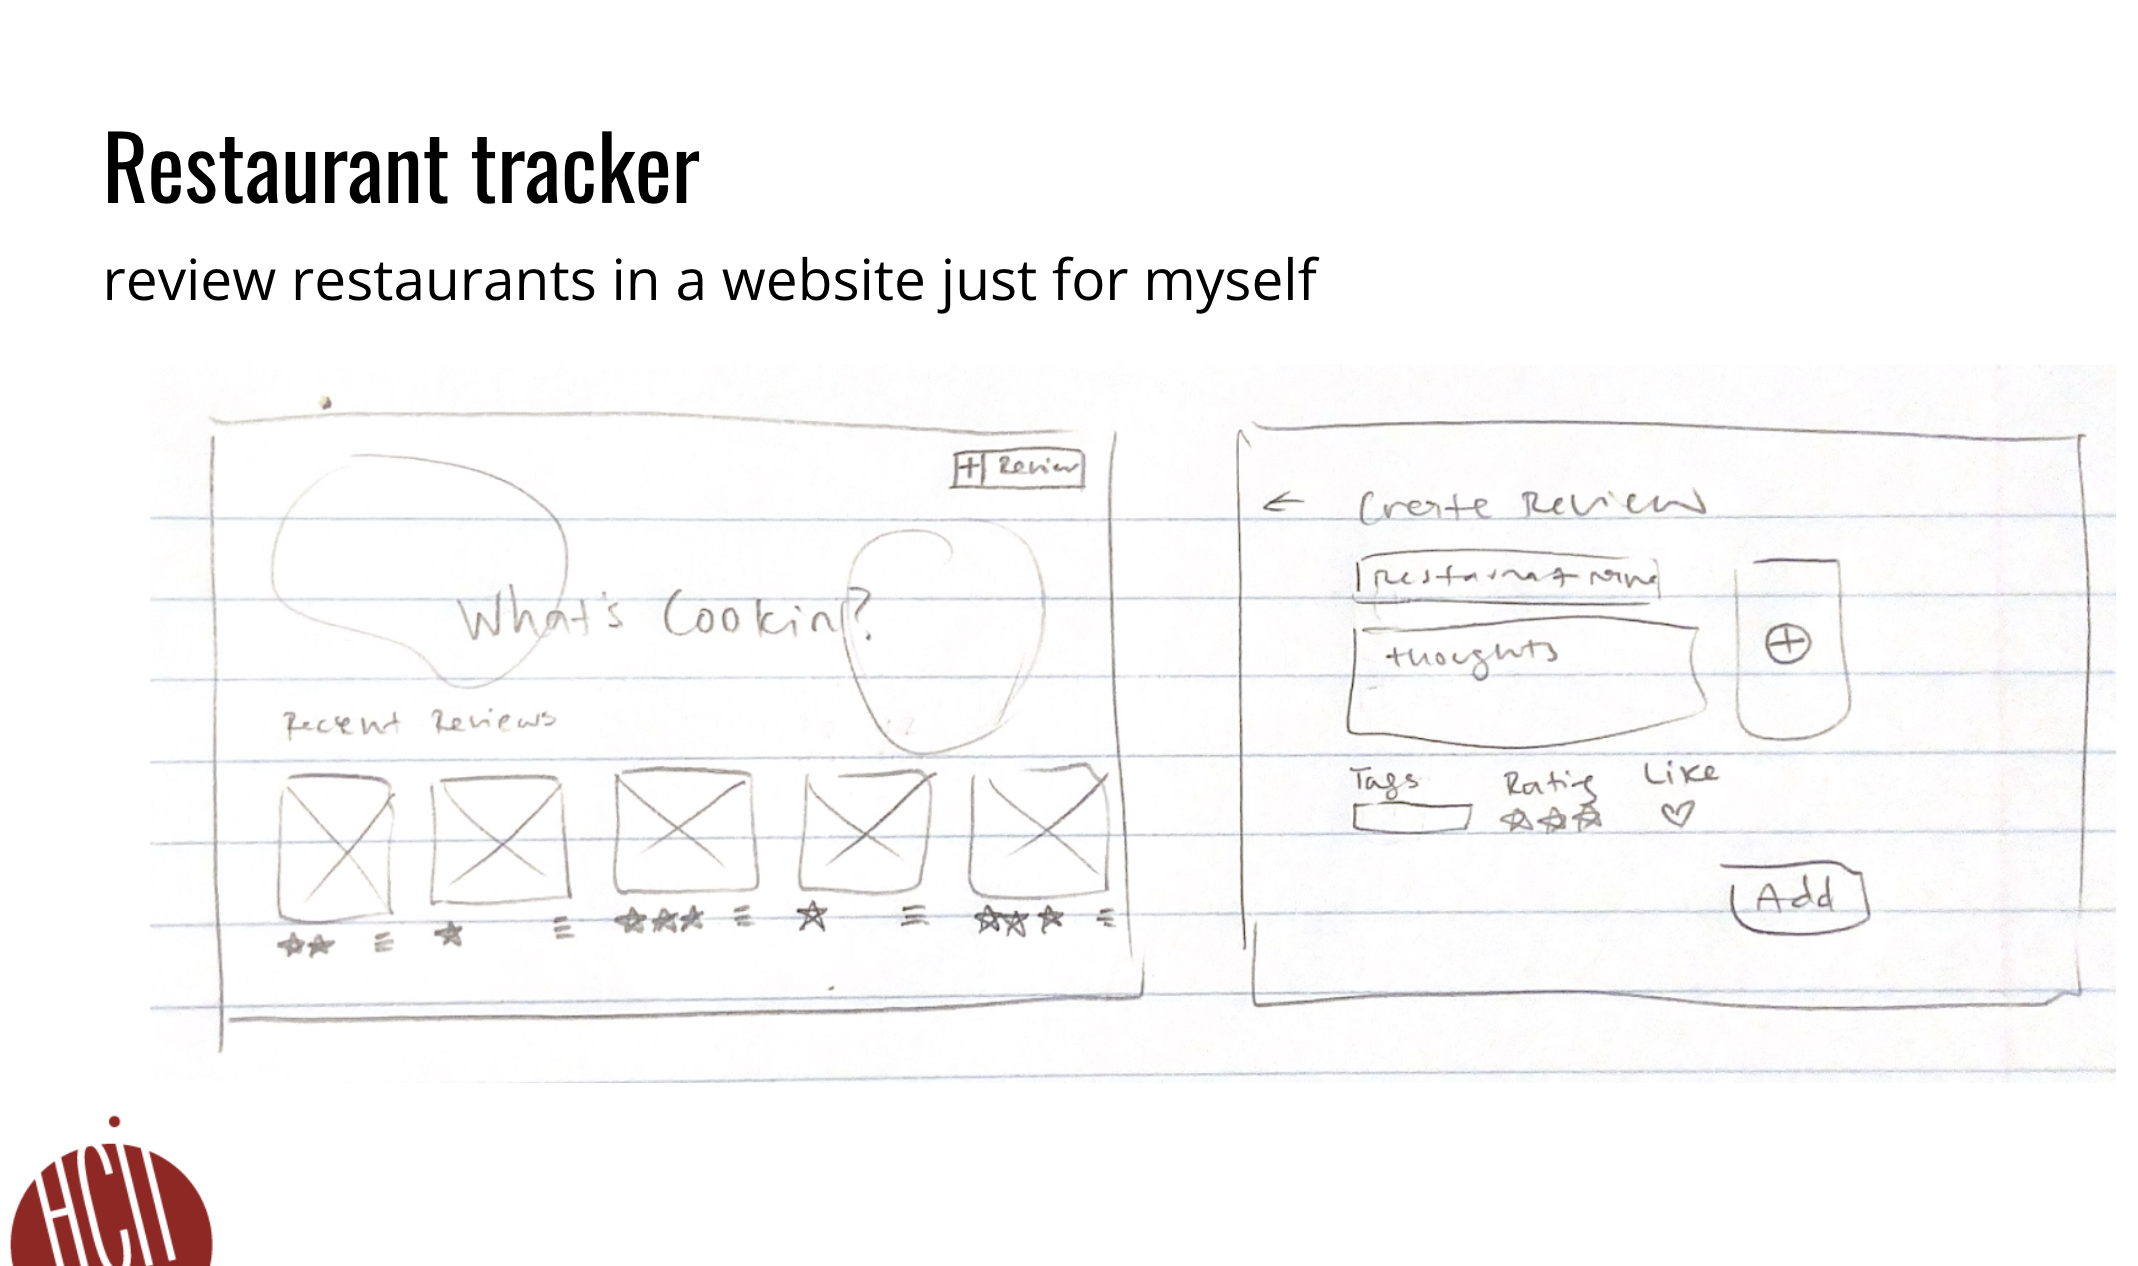 Restaurant tracker
review restaurants in a website just for myself
+ Review
What's Cookin?
Recent Reviews
← Create Review
restaurant name
thoughts
Tags Rating Like
Add
HCII